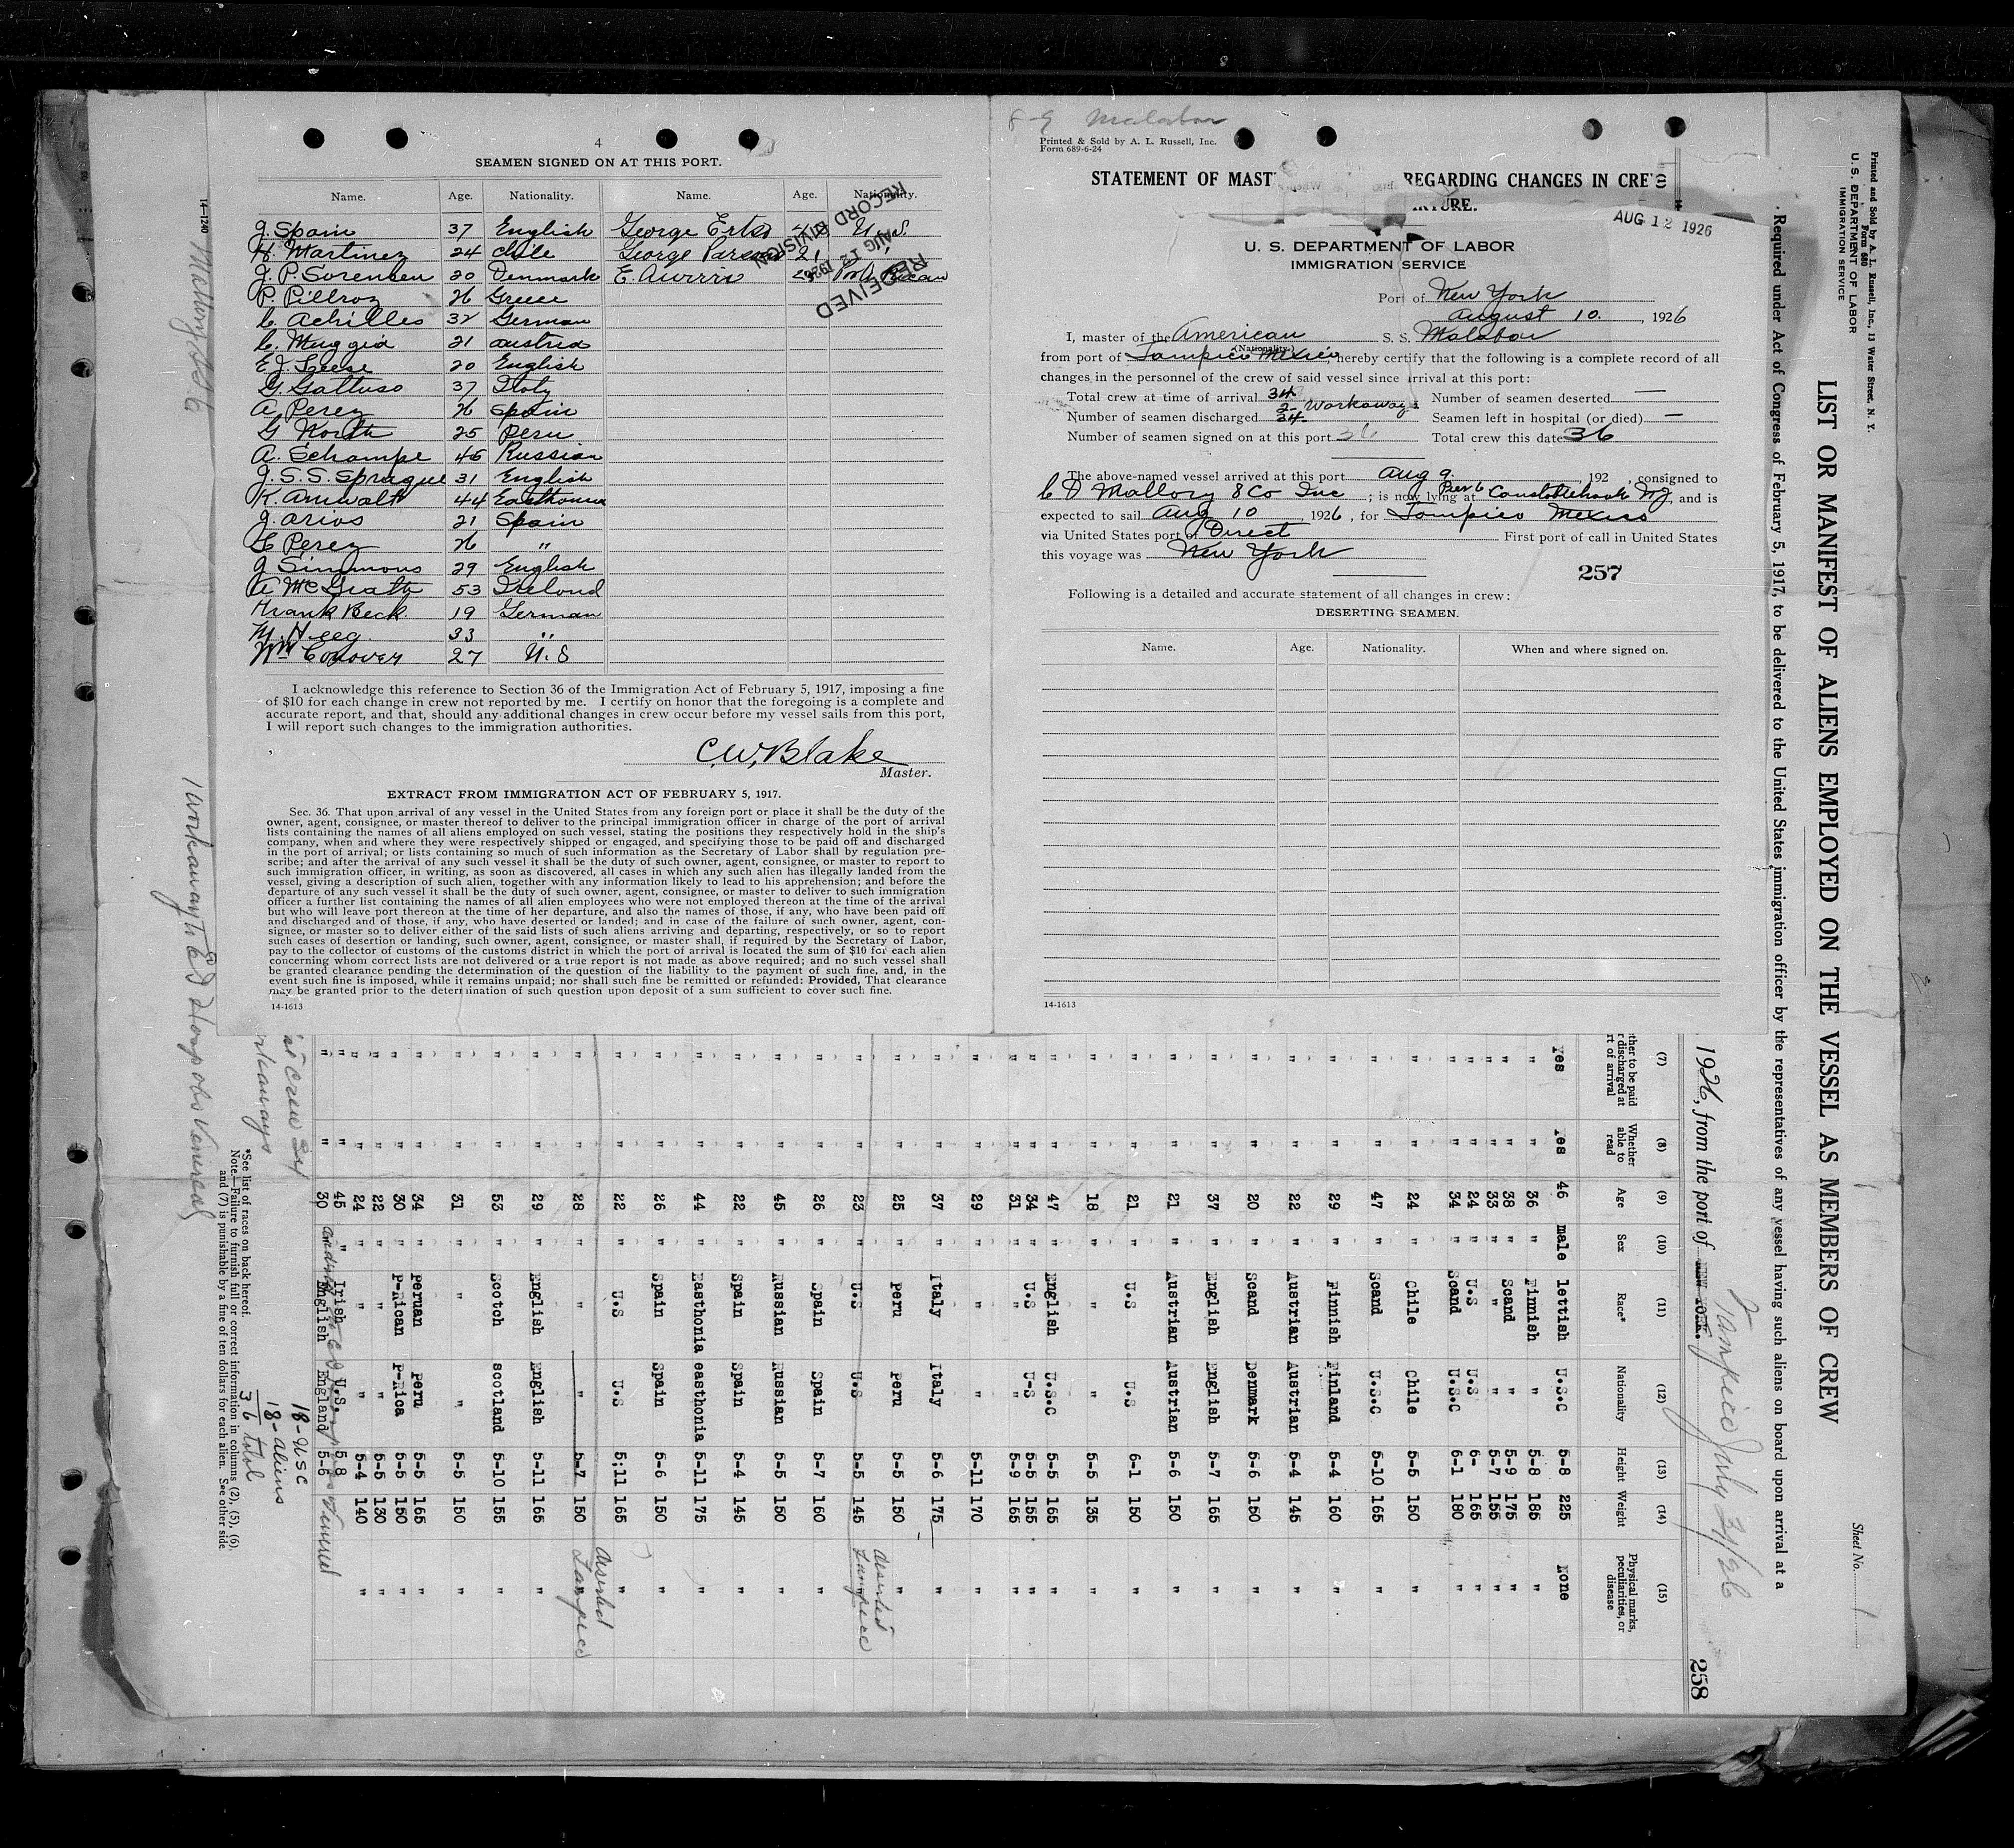 4
SEAMEN SIGNED ON AT THIS PORT.
Name. Age. Nationality. Name. Age. Nationality.
J. Spain 37 English George U.S.
H. Martinez 24 chile George 21 "
J. P. Sorensen 20 Denmark E.
P. 26 Greece
C. Achilles 32 German
C. Muggia 21 austria
E. J. Leese 20 English
G. Gattuso 37 Italy
A Perez 26 Spain
G North 25 Peru
A. Schampe 46 Russian
J. S. S. Sprague 31 English
K. Annwalt 44 Easthonia
J. arios 21 Spain
E Perez 26 "
J Simmons 29 English
A McGrath 53 Ireland
Frank Beck 19 German
M. Heeg. 33 "
Wm Conover 27 U.S
RECEIVED
AUG 12 1926
RECORD DIVISION
I acknowledge this reference to Section 36 of the Immigration Act of February 5, 1917, imposing a fine
of $10 for each change in crew not reported by me. I certify on honor that the foregoing is a complete and
accurate report, and that, should any additional changes in crew occur before my vessel sails from this port,
I will report such changes to the immigration authorities.
C. W. Blake
Master.
EXTRACT FROM IMMIGRATION ACT OF FEBRUARY 5, 1917.
Sec. 36. That upon arrival of any vessel in the United States from any foreign port or place it shall be the duty of the
owner, agent, consignee, or master thereof to deliver to the principal immigration officer in charge of the port of arrival
lists containing the names of all aliens employed on such vessel, stating the positions they respectively hold in the ship's
company, when and where they were respectively shipped or engaged, and specifying those to be paid off and discharged
in the port of arrival; or lists containing so much of such information as the Secretary of Labor shall by regulation pre-
scribe; and after the arrival of any such vessel it shall be the duty of such owner, agent, consignee, or master to report to
such immigration officer, in writing, as soon as discovered, all cases in which any such alien has illegally landed from the
vessel, giving a description of such alien, together with any information likely to lead to his apprehension; and before the
departure of any such vessel it shall be the duty of such owner, agent, consignee, or master to deliver to such immigration
officer a further list containing the names of all alien employees who were not employed thereon at the time of the arrival
but who will leave port thereon at the time of her departure, and also the names of those, if any, who have been paid off
and discharged and of those, if any, who have deserted or landed; and in case of the failure of such owner, agent, con-
signee, or master so to deliver either of the said lists of such aliens arriving and departing, respectively, or so to report
such cases of desertion or landing, such owner, agent, consignee, or master shall, if required by the Secretary of Labor,
pay to the collector of customs of the customs district in which the port of arrival is located the sum of $10 for each alien
concerning whom correct lists are not delivered or a true report is not made as above required; and no such vessel shall
be granted clearance pending the determination of the question of the liability to the payment of such fine, and, in the
event such fine is imposed, while it remains unpaid; nor shall such fine be remitted or refunded: Provided, That clearance
may be granted prior to the determination of such question upon deposit of a sum sufficient to cover such fine.
14-1613
8-9 Malabar
Printed & Sold by A. L. Russell, Inc.
Form 689-6-24
STATEMENT OF MAST REGARDING CHANGES IN CREW
RTURE.
AUG 12 1926
U. S. DEPARTMENT OF LABOR
IMMIGRATION SERVICE
Port of New York
August 10. , 1926
I, master of the American S. S. Malabar
(Nationality.)
from port of Tampico Mexico, hereby certify that the following is a complete record of all
changes in the personnel of the crew of said vessel since arrival at this port:
Total crew at time of arrival 34 Number of seamen deserted —
2- Workaways
Number of seamen discharged 34 Seamen left in hospital (or died) —
Number of seamen signed on at this port 36 Total crew this date 36
The above-named vessel arrived at this port Aug 9. , 192 , consigned to
C D Mallory & Co Inc ; is now lying at Pier 6 Constablehook NJ, and is
expected to sail Aug 10 1926, for Tampico Mexico
via United States port of Direct First port of call in United States
this voyage was New York
257
Following is a detailed and accurate statement of all changes in crew:
DESERTING SEAMEN.
Name. Age. Nationality. When and where signed on.
14-1613
Printed and Sold by A. L. Russell, Inc., 13 Water Street, N. Y.
Form 680
U. S. DEPARTMENT OF LABOR
IMMIGRATION SERVICE
Sheet No. 1
LIST OR MANIFEST OF ALIENS EMPLOYED ON THE VESSEL AS MEMBERS OF CREW
Required under Act of Congress of February 5, 1917, to be delivered to the United States immigration officer by the representatives of any vessel having such aliens on board upon arrival at a
Tampico July 31/26
1926, from the port of NEW YORK.
258
(7) (8) (9) (10) (11) (12) (13) (14) (15)
ther to be paid r discharged at rt of arrival Whether able to read Age Sex Race* Nationality Height Weight Physical marks, peculiarities, or disease
Yes Yes 46 male lettish U.S.C 5-8 225 None
" " 36 " Finnish " 5-8 185 "
" " 38 " Scand " 5-9 175 "
" " 33 " " " 5-7 155 "
" " 24 " U.S U.S 6- 165 "
" " 34 " Scand U.S.C 6-1 180 "
" " 24 " Chile Chile 5-5 150 "
" " 47 " Scand U.S.C 5-10 165 "
" " 29 " Finnish Finland 5-4 160 "
" " 22 " Austrian Austrian 5-4 145 "
" " 20 " Scand Denmark 5-6 150 "
" " 37 " English English 5-7 165 "
" " 21 " Austrian Austrian 5-6 150 "
" " 21 " U.S U.S 6-1 150 "
" " 18 " " " 5-5 135 "
" " 47 " English U.S.C 5-5 165 "
" " 34 " U.S U-S 5-5 155 "
" " 31 " " " 5-9 165 "
" " 29 " " " 5-11 170 "
" " 37 " Italy Italy 5-6 175 "
" " 25 " Peru Peru 5-5 150 "
" " 23 " U.S U.S 5-5 145 Deserted Tampico
" " 26 " Spain Spain 5-7 160 "
" " 45 " Russian Russian 5-5 160 "
" " 22 " Spain Spain 5-4 145 "
" " 44 " Easthonia easthonia 5-11 175 "
" " 26 " Spain Spain 5-6 150 "
" " 22 " U.S U.S 5;11 165 "
" " 28 " " " 5-7 150 Deserted Tampico
" " 29 " English English 5-11 165 "
" " 53 " Scotch Scotland 5-10 155 "
" " 31 " " " 5-5 150 "
" " 34 " Peruan Peru 5-5 165 "
" " 30 " P-Rican P-Rica 5-5 150 "
" " 22 " " " 5-5 130 "
" " 24 " " " 5-4 140 "
" " 45 " Irish U.S. 5 8
" " 30 " English England 5-6
18-USC
18-aliens
36 total
crew 34
*See list of races on back hereof.
Note.—Failure to furnish full or correct information in columns (2), (5), (6),
and (7) is punishable by a fine of ten dollars for each alien. See other side
14-1240
1 Workaway to E I Hosp obs Venereal